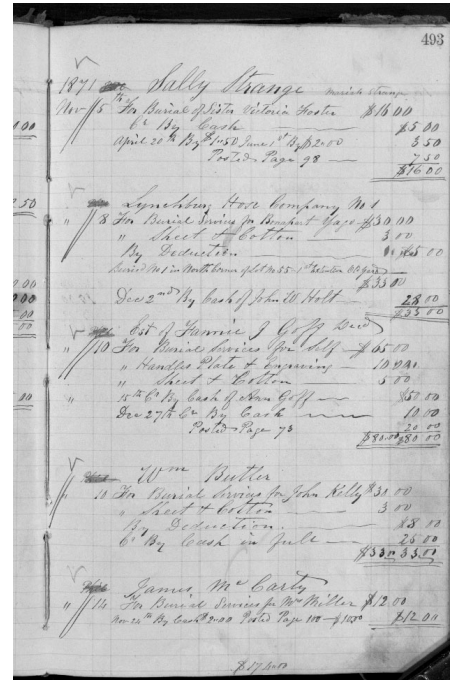 493
1871 Sally Strange
Nov 5th For Burial of Sister Victoria Foster $16 00
Cr By Cash $5 00
April 20th By $1.50 June 1st By $2.00 3 50
Posted Page 98 7 50
$16 00
Lynchburg Hose Company No 1
" 8 For Burial Services for Gage $30.00
" Sheet & Cotton 3 00
By Deduction
$33 00
Dec 2nd By Cash of John W Holt 28 00
$33 00
Est of Fannie J Goff Decd
" 10 For Burial Services for Self $65 00
" Handles Plate & Engraving 10 00
" Sheet & Cotton 5 00
15th Cr By Cash of Ann Goff $50.00
Dec 27th Cr By Cash 10.00
Posted Page 73 20 00
$80.00 $80 00
Wm Butler
" 10 For Burial Services for John Kelly $30.00
" Sheet & Cotton 3 00
By Deduction $8 00
Cr By Cash in full 25 00
$33 00 33 00
James McCarty
" 14 For Burial Services for Mrs Miller $12 00
Nov 24th By Cash $2.00 Posted Page $12 00